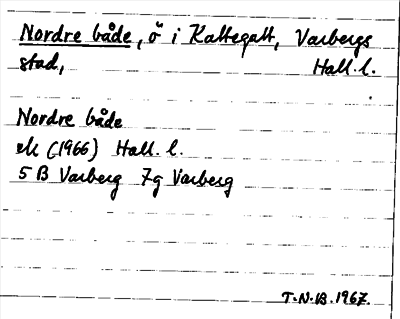 Nordre både, ö i Kattegatt, Varbergs
stad, Hall. l.
Nordre både
ek (1966) Hall. l.
5 B Varberg 7g Varberg
T.N.B. 1967.